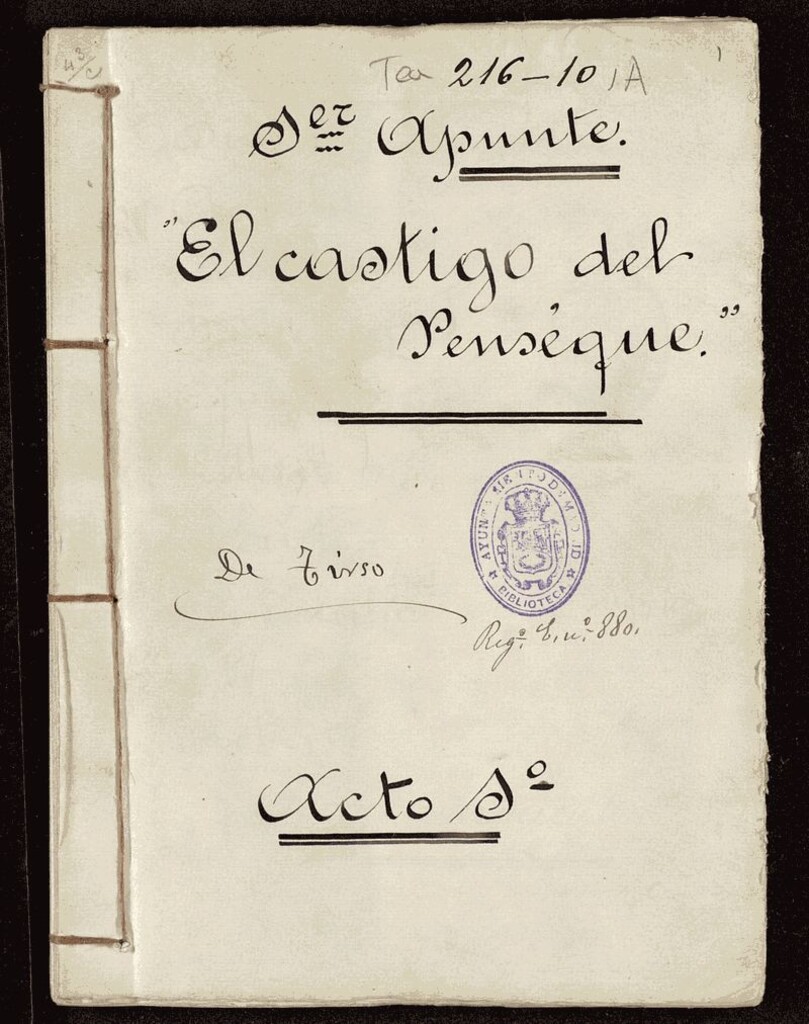 43/c
Tea 216-10, A
1er Apunte.
"El castigo del
Penséque."
AYUNTAMIENTO DE MADRID
BIBLIOTECA
De Tirso
Regº. E. nº. 880.
Acto 1º